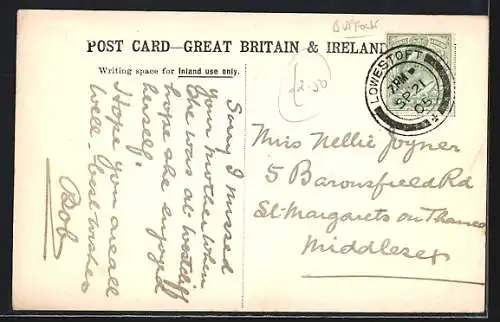 Suffolk
POST CARD—GREAT BRITAIN & IRELAND
Writing space for Inland use only.
£2.50
LOWESTOFT
7PM
SP 21
05
Sorry I missed
your Mother when
she was at Westcliff
hope she enjoyed
herself.
Hope you are all
well - best wishes
Bob
Miss Nellie Joyner
5 Baronsfield Rd
St. Margarets on Thames
Middlesex